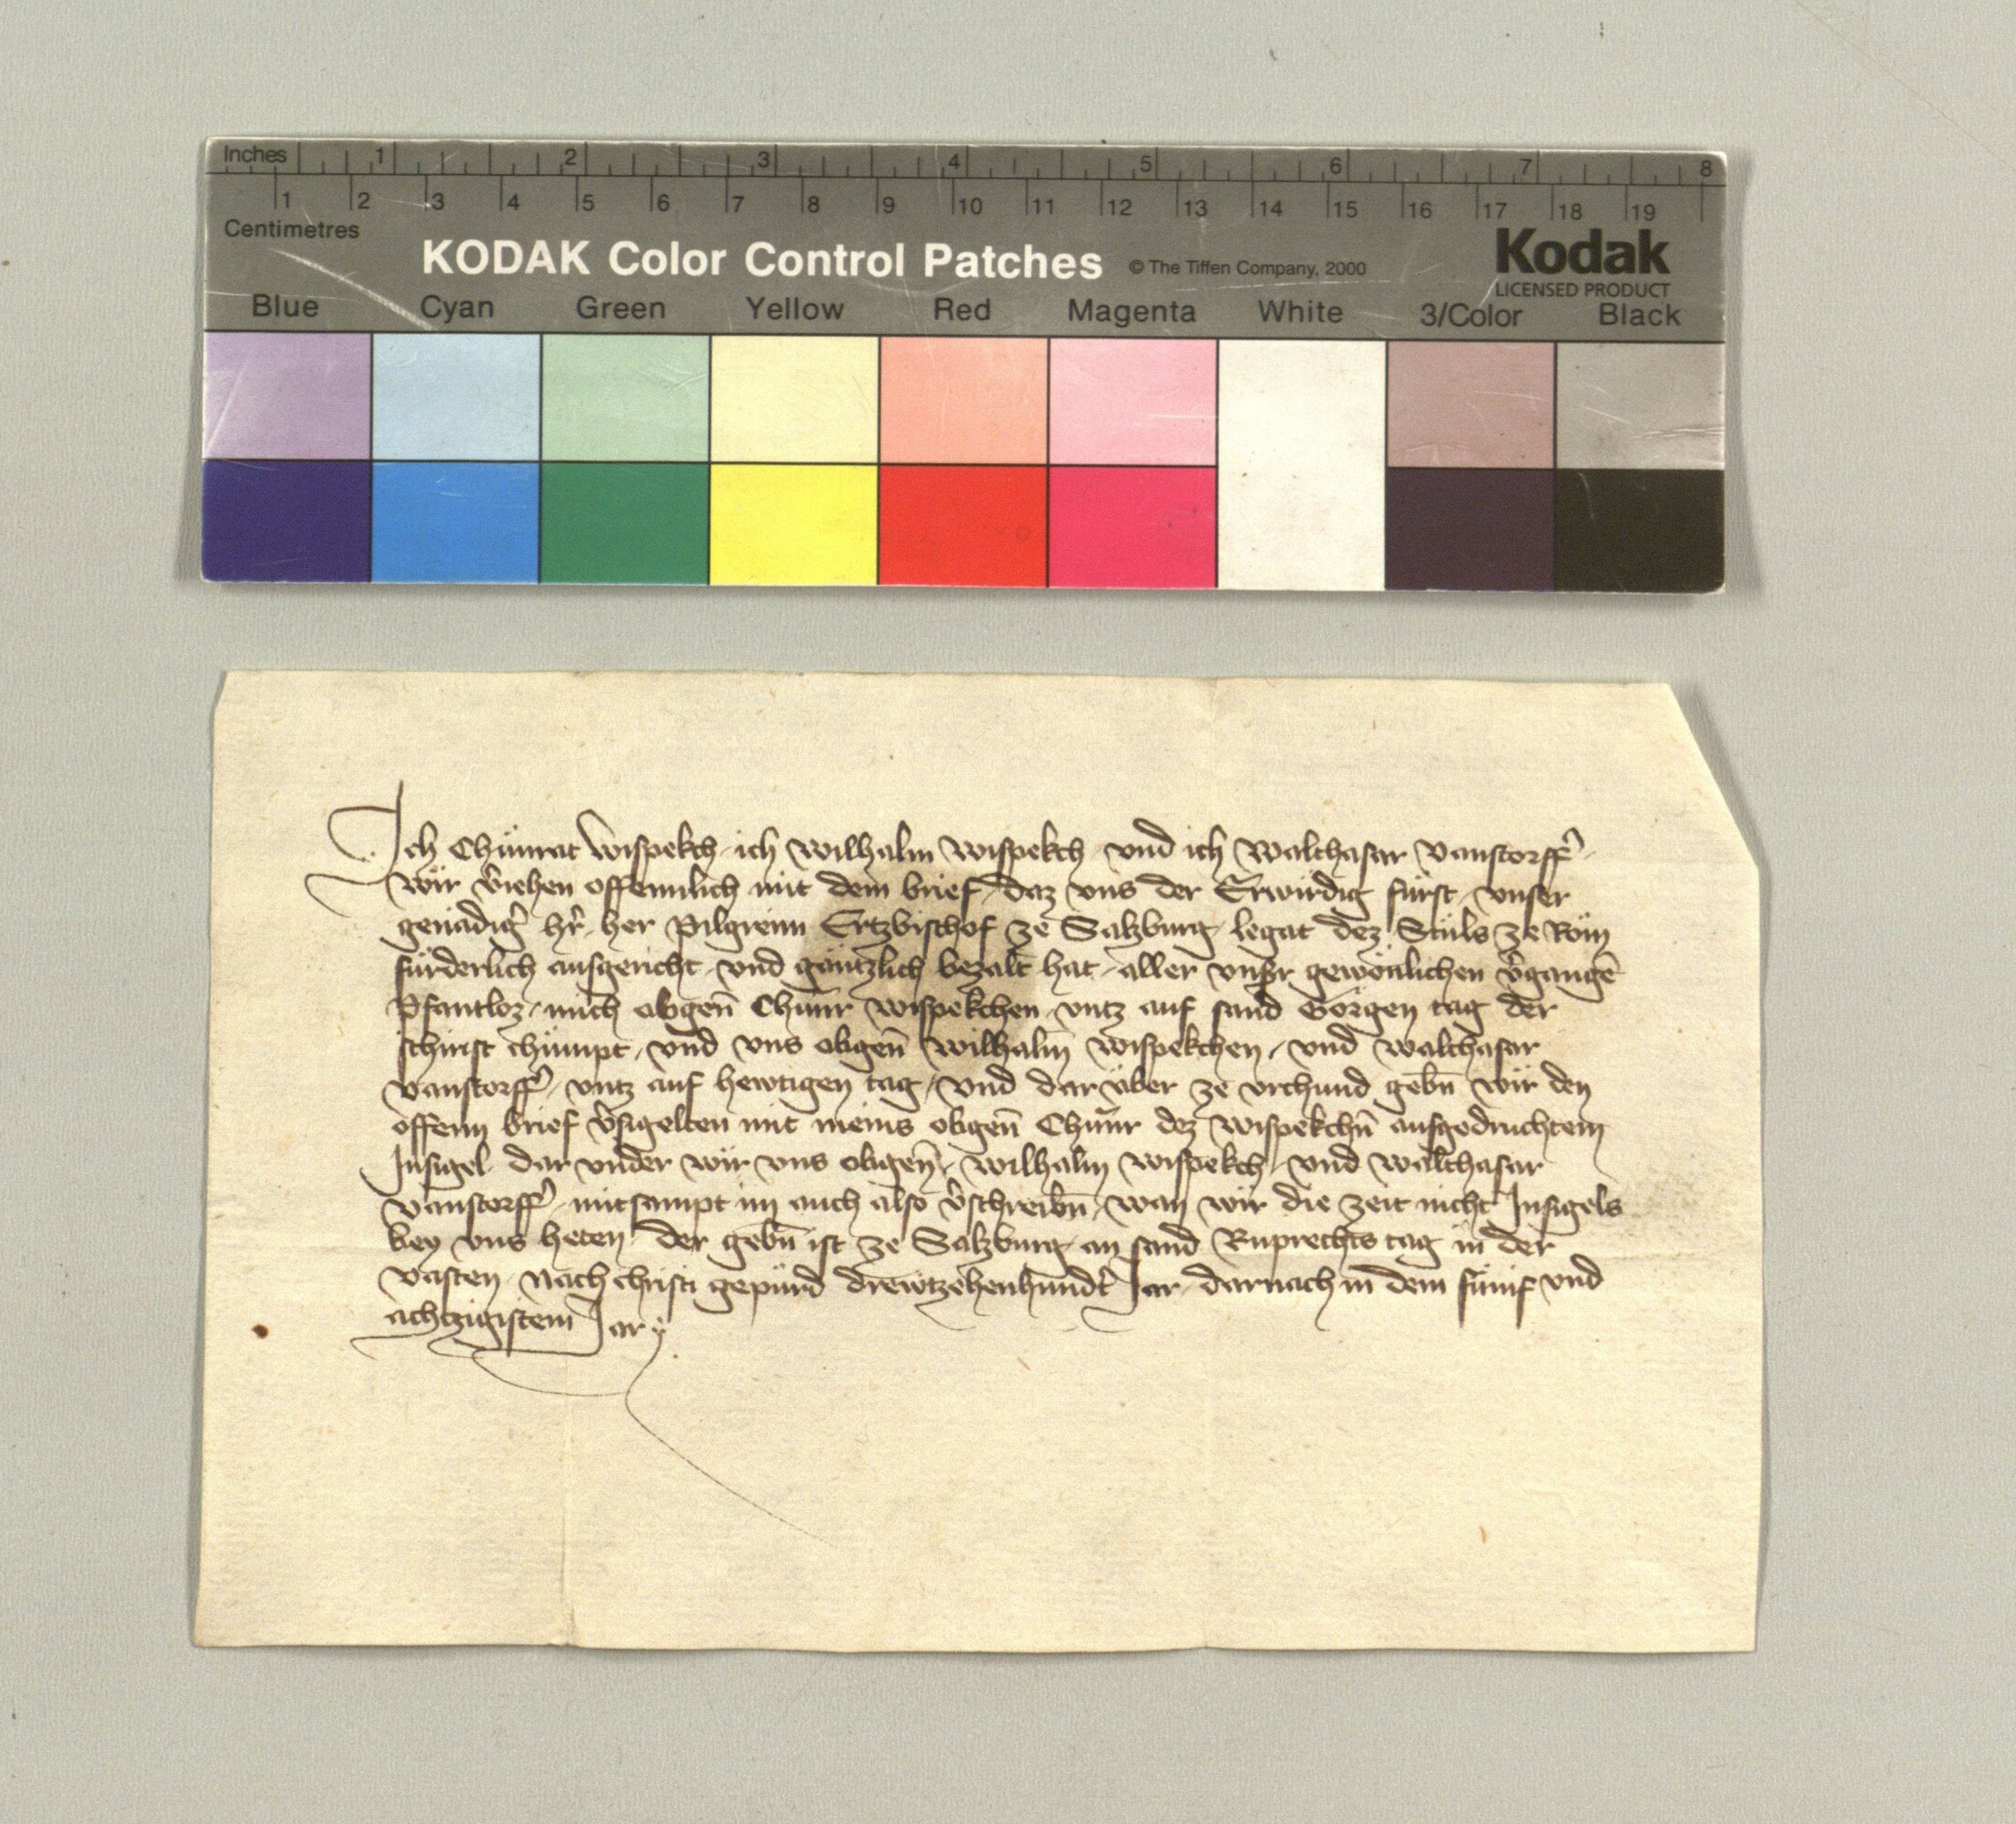 Inches 1 2 3 4 5 6 7 8
1 2 3 4 5 6 7 8 9 10 11 12 13 14 15 16 17 18 19
Centimetres
KODAK Color Control Patches © The Tiffen Company, 2000 Kodak
LICENSED PRODUCT
Blue Cyan Green Yellow Red Magenta White 3/Color Black
Ich Chünrat Wispekch ich Wilhalm Wispekch vnd ich Walthasar Vanstorff̉
wir v̉iehen offennlich mit dem brief daz vns der Erwirdig fürst vnser
genädig̉ hr̉ her Pilgreim Ertzbischof ze Salzburg legat dez Stuls ze Röm
fürderlich ausgericht vnd gäntzlich bezalt hat aller vnsr̉ gewönlichen v̉gangē
Pfantloz mich obgen̄ Chünr Wispekchen vntz auf sand Görgen tag der
schirist chümpt vnd vns obgen̄ Wilhalm̄ Wispekchen vnd Walthasar
Vanstorff̉ vntz auf hewtigen tag vnd darüber ze vrchund gebn̄ wir den
offenn brief v̉sigelten mit meins obgen̄ Chünr dez Wispekchn̄ aufgedruchtem
Insigel dar vnder wir vns obgen̄ Wilhalm Wispekch vnd Walthasar
Vanstorff̉ mitsampt im auch also v̉schreibn̄ wan wir die zeit nicht Insigels
bey vns heten der gebn̄ ist ze Salzburg an sand Ruprechts tag in der
Vasten Nach christi gepürd drewtzehenhundt̉ Iar darnach in dem fünf vnd
achtzigistem Iar